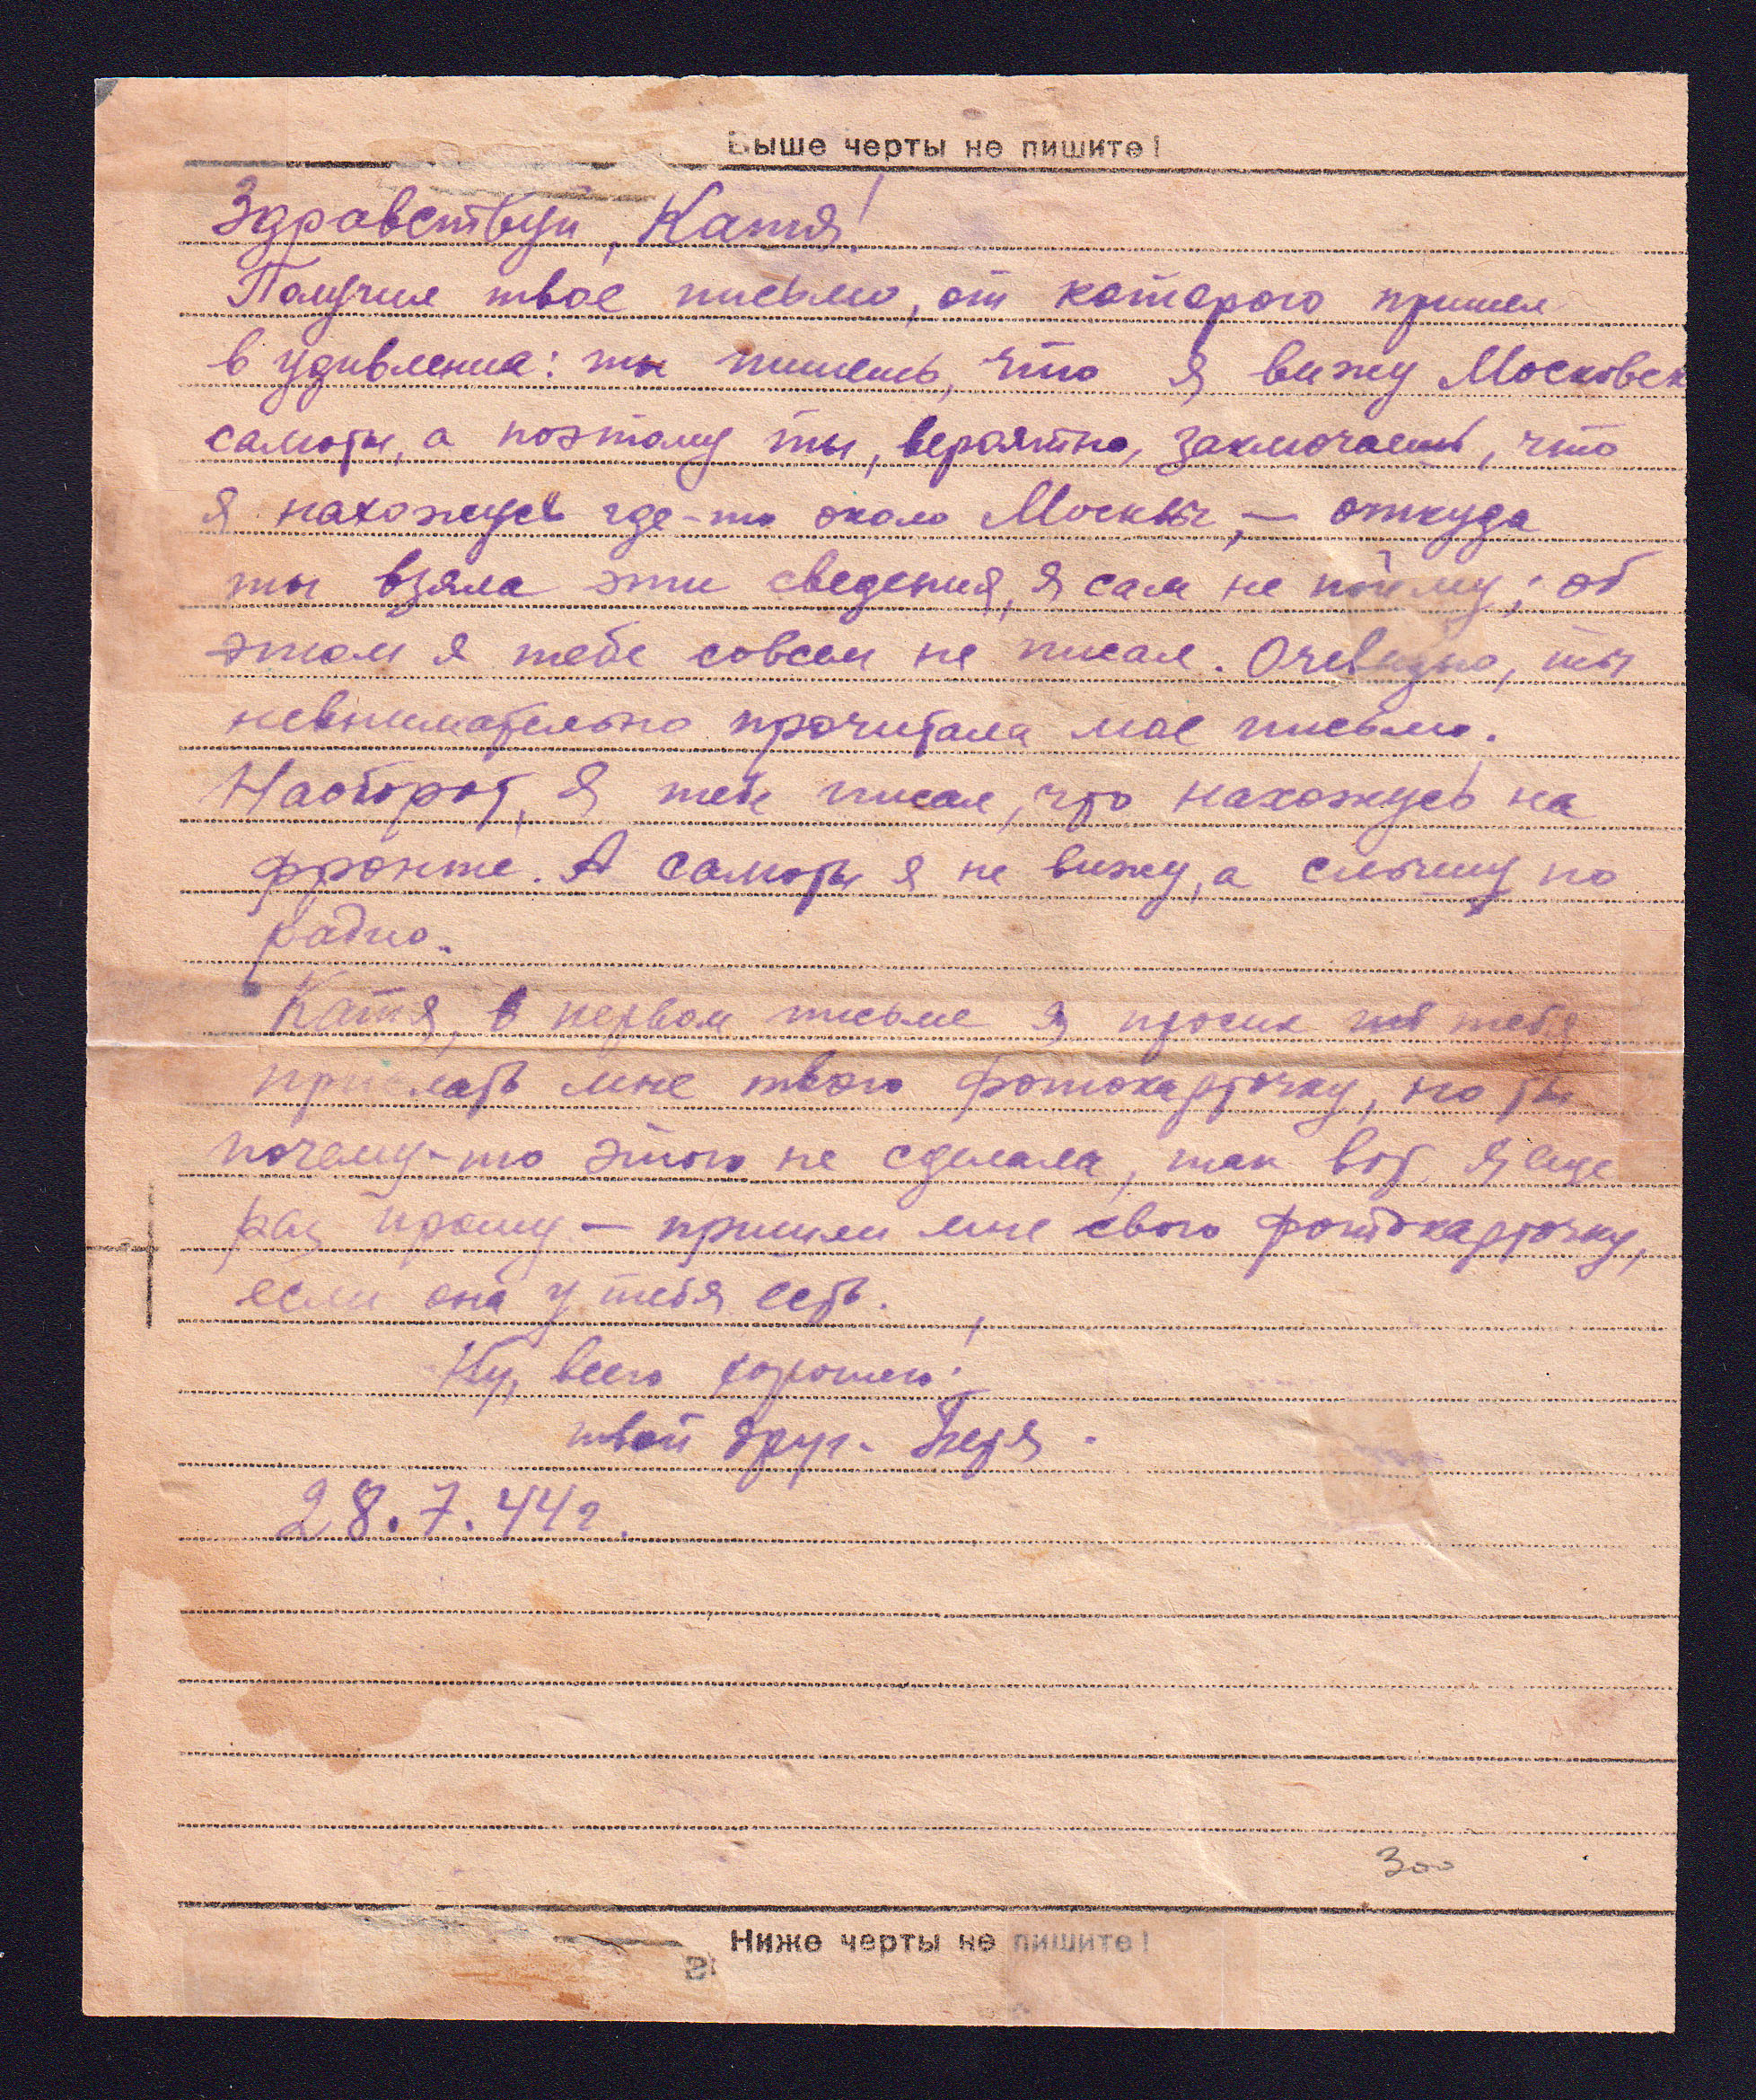 Выше черты не пишите!
Здравствуй, Катя!
Получил твое письмо, от которого пришел
в удивление: ты пишешь, что я вижу Московск
салюты, а поэтому ты, вероятно, заключаешь, что
я нахожусь где-то около Москвы, — откуда
ты взяла эти сведения, я сам не пойму; об
этом я тебе совсем не писал. Очевидно, ты
невнимательно прочитала мое письмо.
Наоборот, я тебе писал, что нахожусь на
фронте. А салюты я не вижу, а слышу по
радио.
Катя, в первом письме я просил тебя
прислать мне твою фотокарточку, но ты
почему-то этого не сделала, так вот, я еще
раз прошу — пришли мне свою фотокарточку,
если она у тебя есть.
Ну, всего хорошего!
твой друг - Петя.
28.7.44г.
300
Ниже черты не пишите!